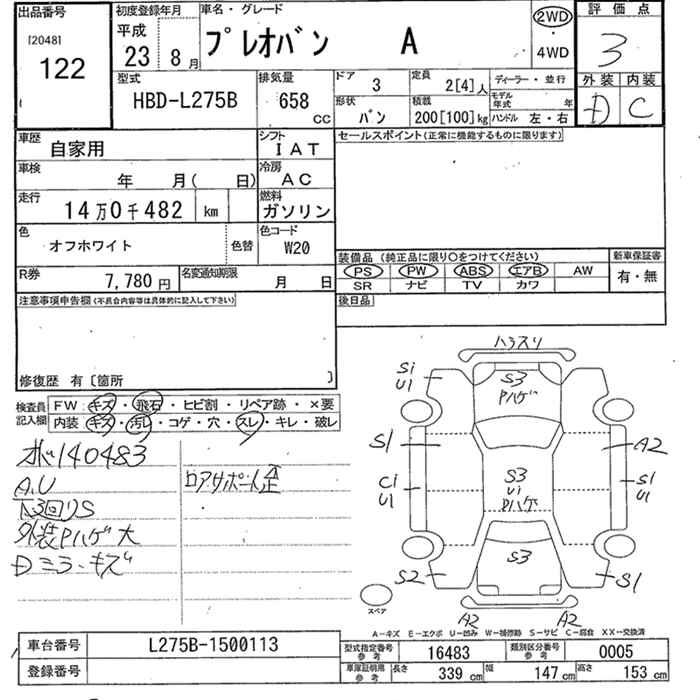 出品番号 初度登録年月 車名・グレード 2WD 評価点
[2048] 平成 プレオバン A 3
122 23 8月 4WD 外装 内装
型式 排気量 ドア 3 定員 2[4]人 ディーラー・並行 D C
HBD-L275B 658 cc 形状 バン 積載 200[100]kg モデル年式 年 ハンドル 左・右
車歴 自家用 シフト IAT セールスポイント(正常に機能するものに限ります)
車検 年 月( 日) 冷房 AC
走行 14万0千482 km 燃料 ガソリン
色 オフホワイト 色替 色コード W20
装備品(純正品に限り○をつけてください) 新車保証書
R券 7,780円 名変通知期限 月 日 PS PW ABS エアB AW 有・無
SR ナビ TV カワ
注意事項申告欄(不具合内容等は具体的に記入して下さい) 後日品
修復歴 有〔箇所 〕
検査員記入欄 FW:キズ・飛石・ヒビ割・リペア跡・×要
内装:キズ・汚レ・コゲ・穴・スレ・キレ・破レ
140483
A.U ロアサポート歪
外装Pハゲ大
Dミラーキズ
ハラスリ
Si U1 S3 Pハゲ
S1 A2
Ci U1 S3 Ui Pハゲ S1 U1
S2 S3 S1
スペア A2 A2
A-キズ E-エクボ U-凹み W-補修跡 S-サビ C-腐食 XX-交換済
車台番号 L275B-1500113 型式指定番号 参考 16483 類別区分番号 参考 0005
登録番号 車庫証明用 参考 長さ 339 cm 幅 147 cm 高さ 153 cm